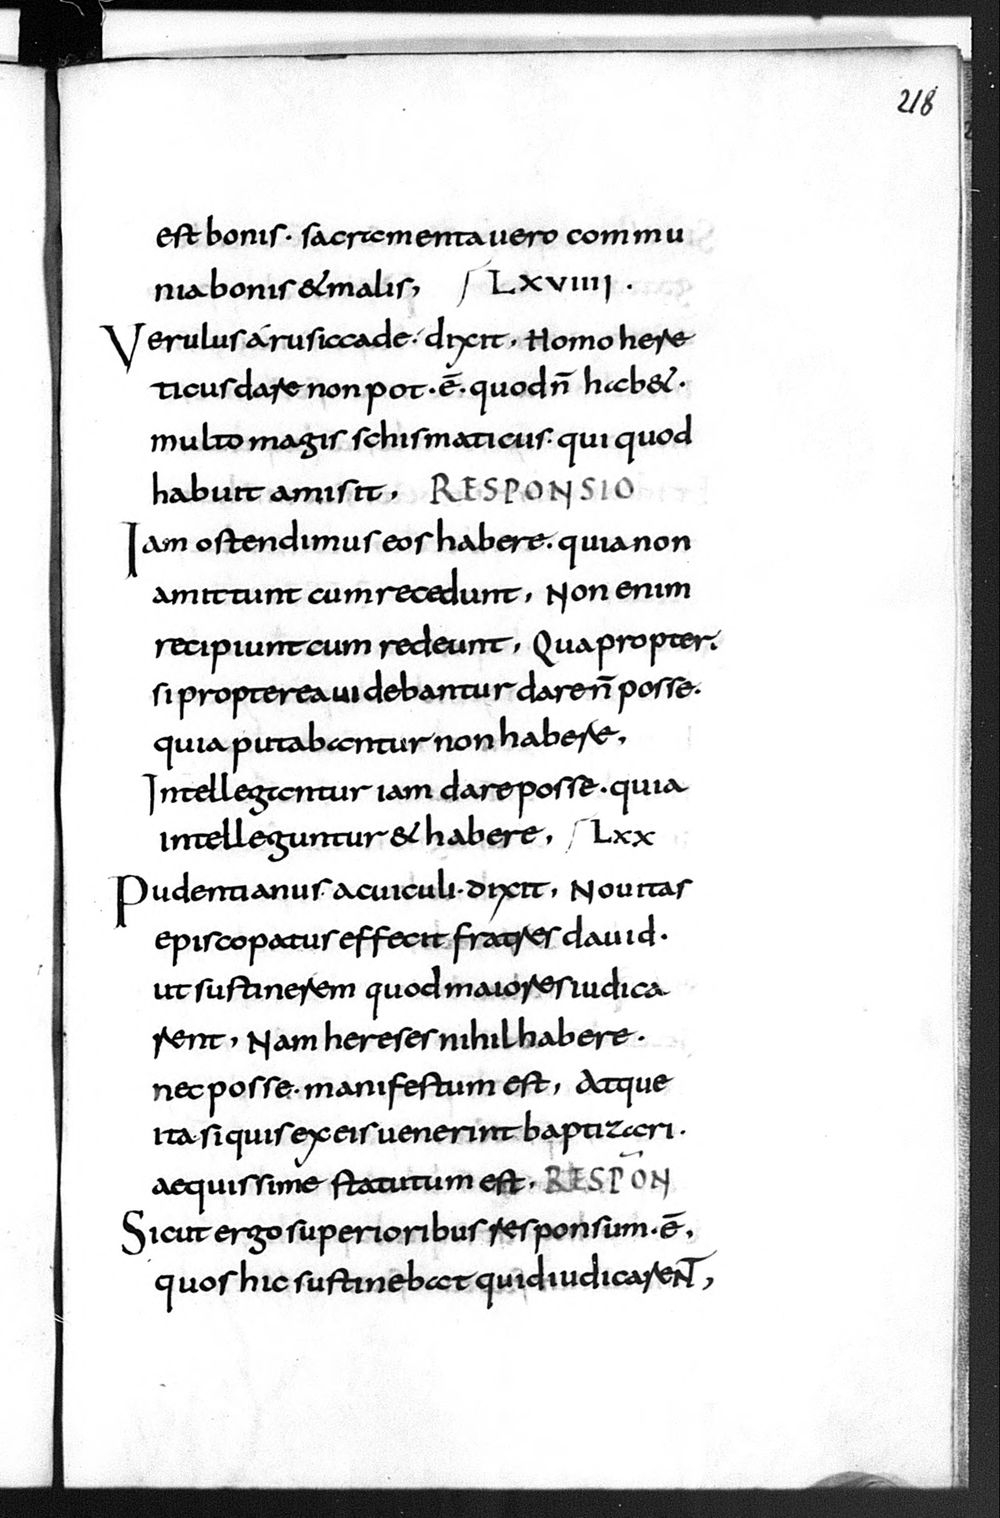 218
est bonis · sacramenta uero commu
nia bonis & malis, LXVIIII ·
Verulus á rusiccade · dixit, Homo here
ticus dare non pot · ē · quod n̄ hab& ·
multo magis schismaticus · qui quod
habuit amisit, RESPONSIO
Iam ostendimus eos habere · quia non
amittunt cum recedunt, Non enim
recipiunt cum redeunt, Quapropter ·
si propterea uidebantur dare n̄ posse ·
quia putabantur non habere,
Intellegantur iam dare posse · quia
intelleguntur & habere, LXX
Pudentianus a cuiculi · dixit, Nouitas
episcopatus effecit fratres dauid ·
ut sustinerem quod maiores iudica
rent, Nam hereses nihil habere ·
nec posse · manifestum est, Atque
ita · si quis ex eis uenerint baptizari ·
aequissime statutum est, RESPON̄
Sicut ergo superioribus responsum · ē,
quos hic sustinebat quid iudicarent,